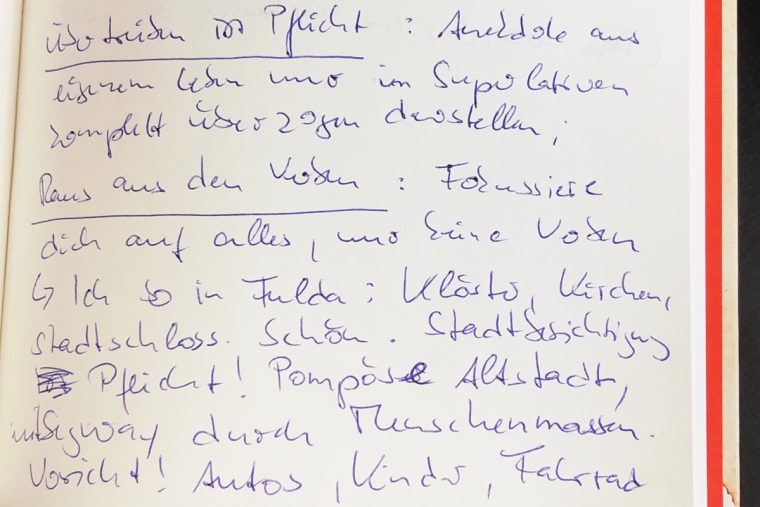 übertreiben ist Pflicht : Anekdote aus
eigenem Leben und im Superlativen
komplett überzogen darstellen ;
Raus aus den Verben : Fokussiere
dich auf alles, nur keine Verben
↳ Ich so in Fulda : Klöster, Kirchen,
Stadtschloss. Schön. Stadtbesichtigung
Pflicht! Pompöse Altstadt,
mit Segway durch Menschenmassen.
Vorsicht! Autos, Kinder, Fahrrad